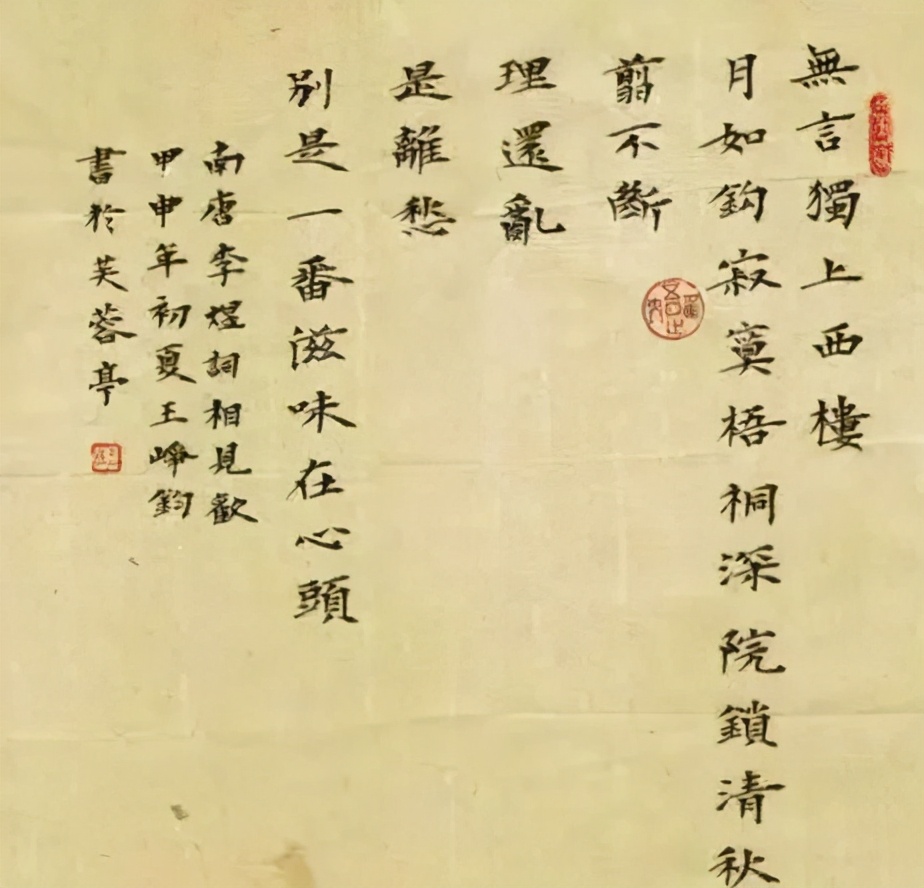 無言獨上西樓
月如鈎寂寞梧桐深院鎖清秋
剪不斷
理還亂
是離愁
別是一番滋味在心頭
南唐李煜詞相見歡
甲申年初夏王崢鈞
書於芙蓉亭